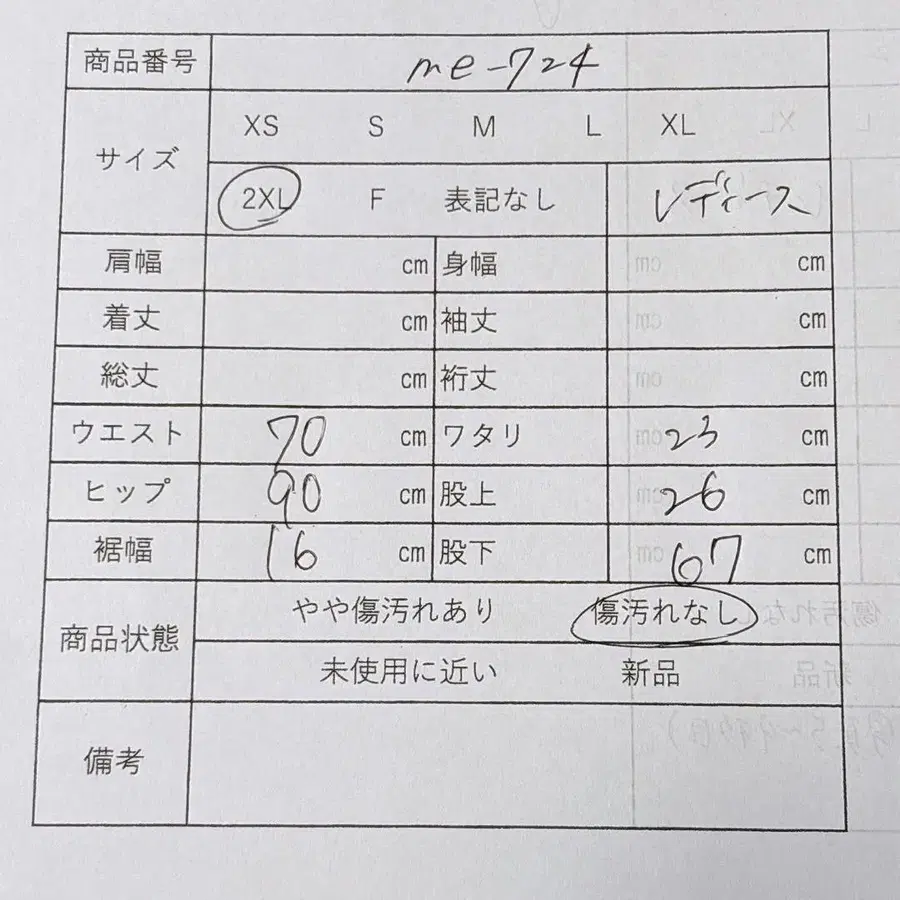 商品番号 me-724
サイズ XS S M L XL
2XL F 表記なし レディース
肩幅 cm 身幅 cm
着丈 cm 袖丈 cm
総丈 cm 裄丈 cm
ウエスト 70 cm ワタリ 23 cm
ヒップ 90 cm 股上 26 cm
裾幅 16 cm 股下 67 cm
商品状態 やや傷汚れあり 傷汚れなし
未使用に近い 新品
備考